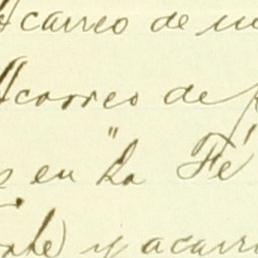 Acarreo de
Acarreo de
en "La Fé
y acarr